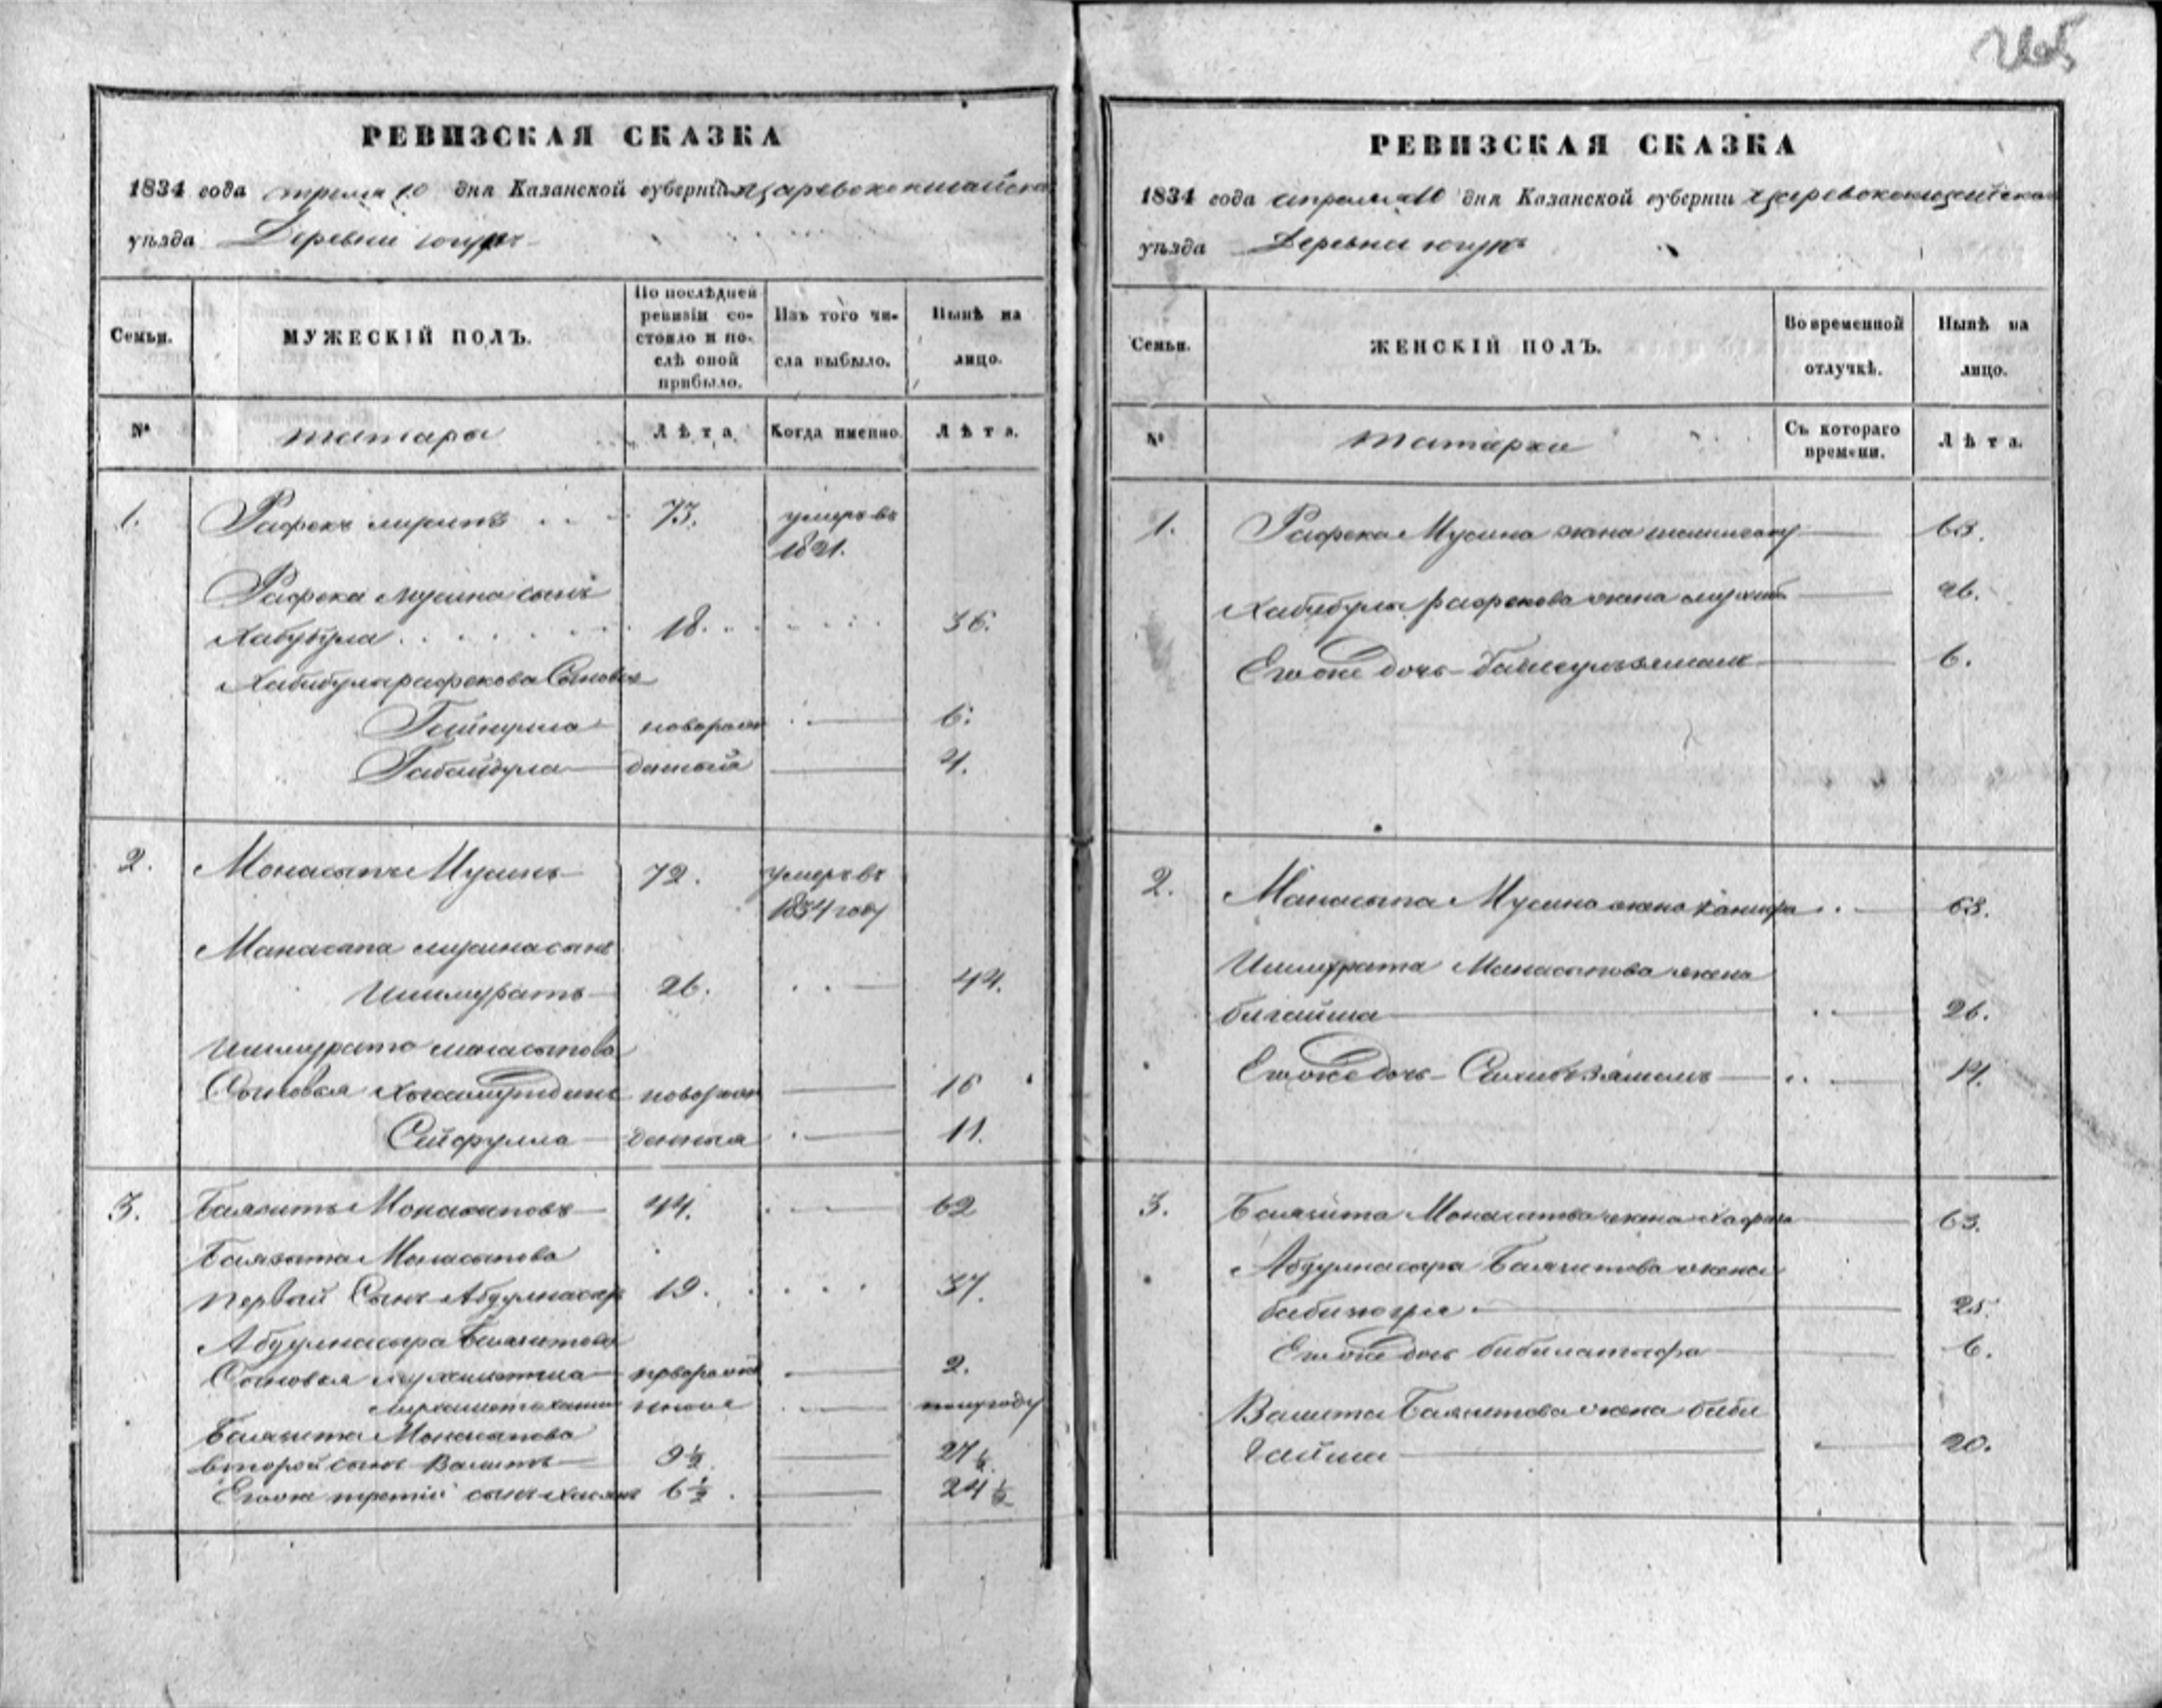 РЕВИЗСКАЯ СКАЗКА
1834 года апреля 10 дня Казанской губерніи Царевококшайска
уѣзда Деревни
Семьи.
МУЖЕСКІЙ ПОЛЪ.
По послѣдней
ревизіи со-
стояло и по-
слѣ оной
прибыло.
Изъ того чи-
сла выбыло.
Нынѣ на
лицо.
№
татары
Лѣта.
Когда именно.
Лѣта.
1. Рафекъ 73. умеръ въ
1821.
Рафека Мусина сынъ
Хабубула 18. 36.
Хабибулы рафекова Сыновья
Гайнулла новорож 6.
Габайдула денный 4.
2. Монасыпъ Мусинъ 72. умеръ въ
1834 году
Манасыпа мусина сынъ
Ишмуратъ 26. 44.
Ишмурата монасыпова
Сыновья новорож 16
Сейфулла денныя 11.
3. Баязитъ Монасыповъ 44. 62
Баязита Монасыпова
первый Сынъ Абдулнасыр 19. 37.
Абдулнасыра Баязитова
Сыновья новорож 2.
полугоду
Баязита Монасыпова
второй сынъ Валитъ 9½. 27½.
Егоже третій сынъ 6½. 24½
РЕВИЗСКАЯ СКАЗКА
1834 года апреля 10 дня Казанской губерніи Царевококшайска
уѣзда Деревни
Семьи.
ЖЕНСКІЙ ПОЛЪ.
Во временной
отлучкѣ.
Нынѣ на
лицо.
№
татарки
Съ котораго
времени.
Лѣта.
1. Рафека Мусина жена 63.
Хабибулы рафекова жена 26.
Егоже дочь 6.
2. Манасыпа Мусина жена ханифа 63.
Ишмурата Манасыпова жена
бигайша 26.
Егоже дочь 14.
3. Баязита Монасыпова жена 63.
Абдулнасыра Баязитова жена
25.
Егоже дочь 6.
Валита Баязитова жена биби
гайша 20.